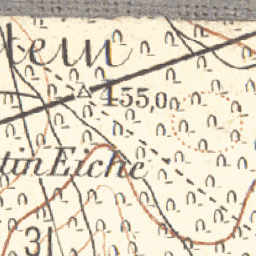 tein
455,0
tin Eiche
31